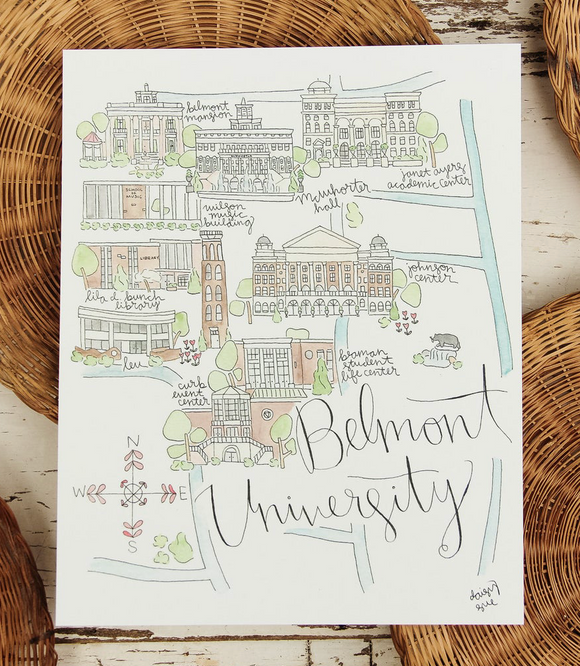 belmont
mansion
mcwhorter
hall
janet ayers
academic center
SCHOOL OF
MUSIC
wilson
music
building
LIBRARY
lila d. bunch
library
johnson
center
leu
braman
student
life center
curb
event
center
Belmont
University
N
W
E
S
daisy